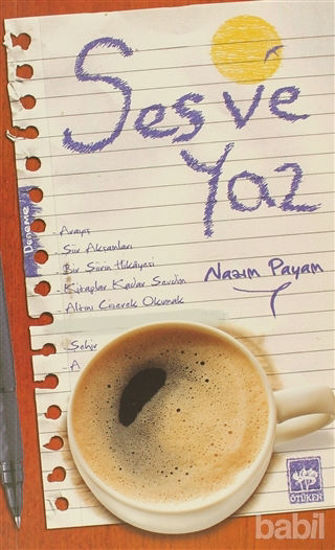 Ses ve
Yaz
Deneme
- Arayış
- Şiir Akşamları
- Bir Şiirin Hikâyesi
- Kitaplar Kadar Sevdim
- Altını Çizerek Okumak
Nazım Payam
- Şehir
- A
ÖTÜKEN
babil